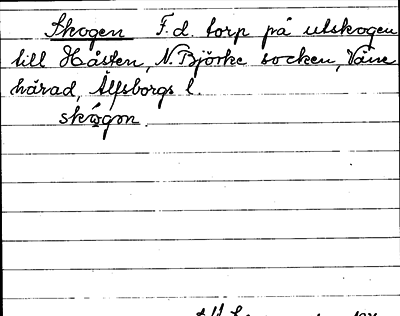 Skogen F.d. torp på utskogen
till Håsten, N. Björke socken, Väne
härad, Älfsborgs l.
skógon.